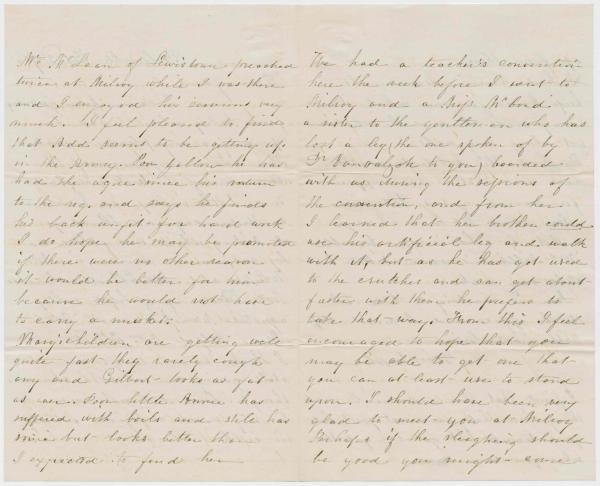 Mr. McLean of Lewistown preached
twice at Milroy while I was there
and I enjoyed his sermons very
much. I feel pleased to find
that Add seems to be getting up
in the Army. Poor fellow he has
had the ague since his return
to the reg. and says he finds
his back unfit for hard work
I do hope he may be promoted
if there were no other reason
it would be better for him
because he would not have
to carry a musket.
Mary's children are getting well
quite fast they rarely cough
any and Gilbert looks as fat
as ever. Poor little Annie has
suffered with boils and still has
some but looks better than
I expected to find her
We had a teacher's convention
here the week before I went to
Milroy and a Miss McCord
a sister to the gentleman who has
lost a leg (the one spoken of by
Dr Vanvalzah to you) boarded
with us during the sessions of
the convention, and from her
I learned that her brother could
use his artificial leg and walk
with it, but as he has got used
to the crutches and can get about
faster with them he prefers to
take that way. From this I feel
encouraged to hope that you
may be able to get one that
you can at least use to stand
upon. I should have been very
glad to meet you at Milroy
Perhaps if the sleighing should
be good you might come